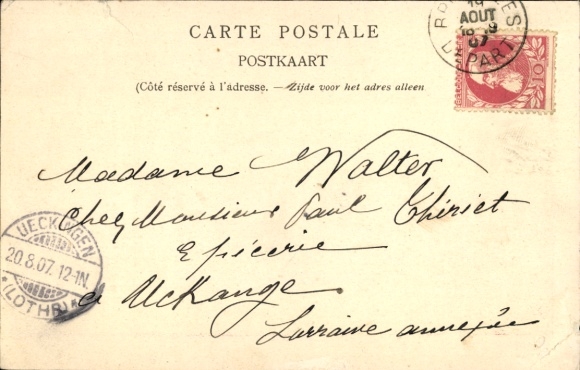 CARTE POSTALE
POSTKAART
(Côté réservé à l'adresse. — Zijde voor het adres alleen
19
AOUT
07
DEPART
10
Madame Walter
Chez Monsieur Paul Thiriet
Epicerie
à Uckange
Lorraine annexée
UECKINGEN
20.8.07. 12-1N.
* (LOTHR) *